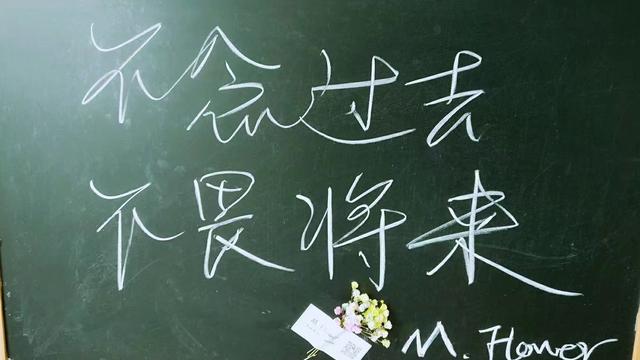 不念过去
不畏将来
M. Flower